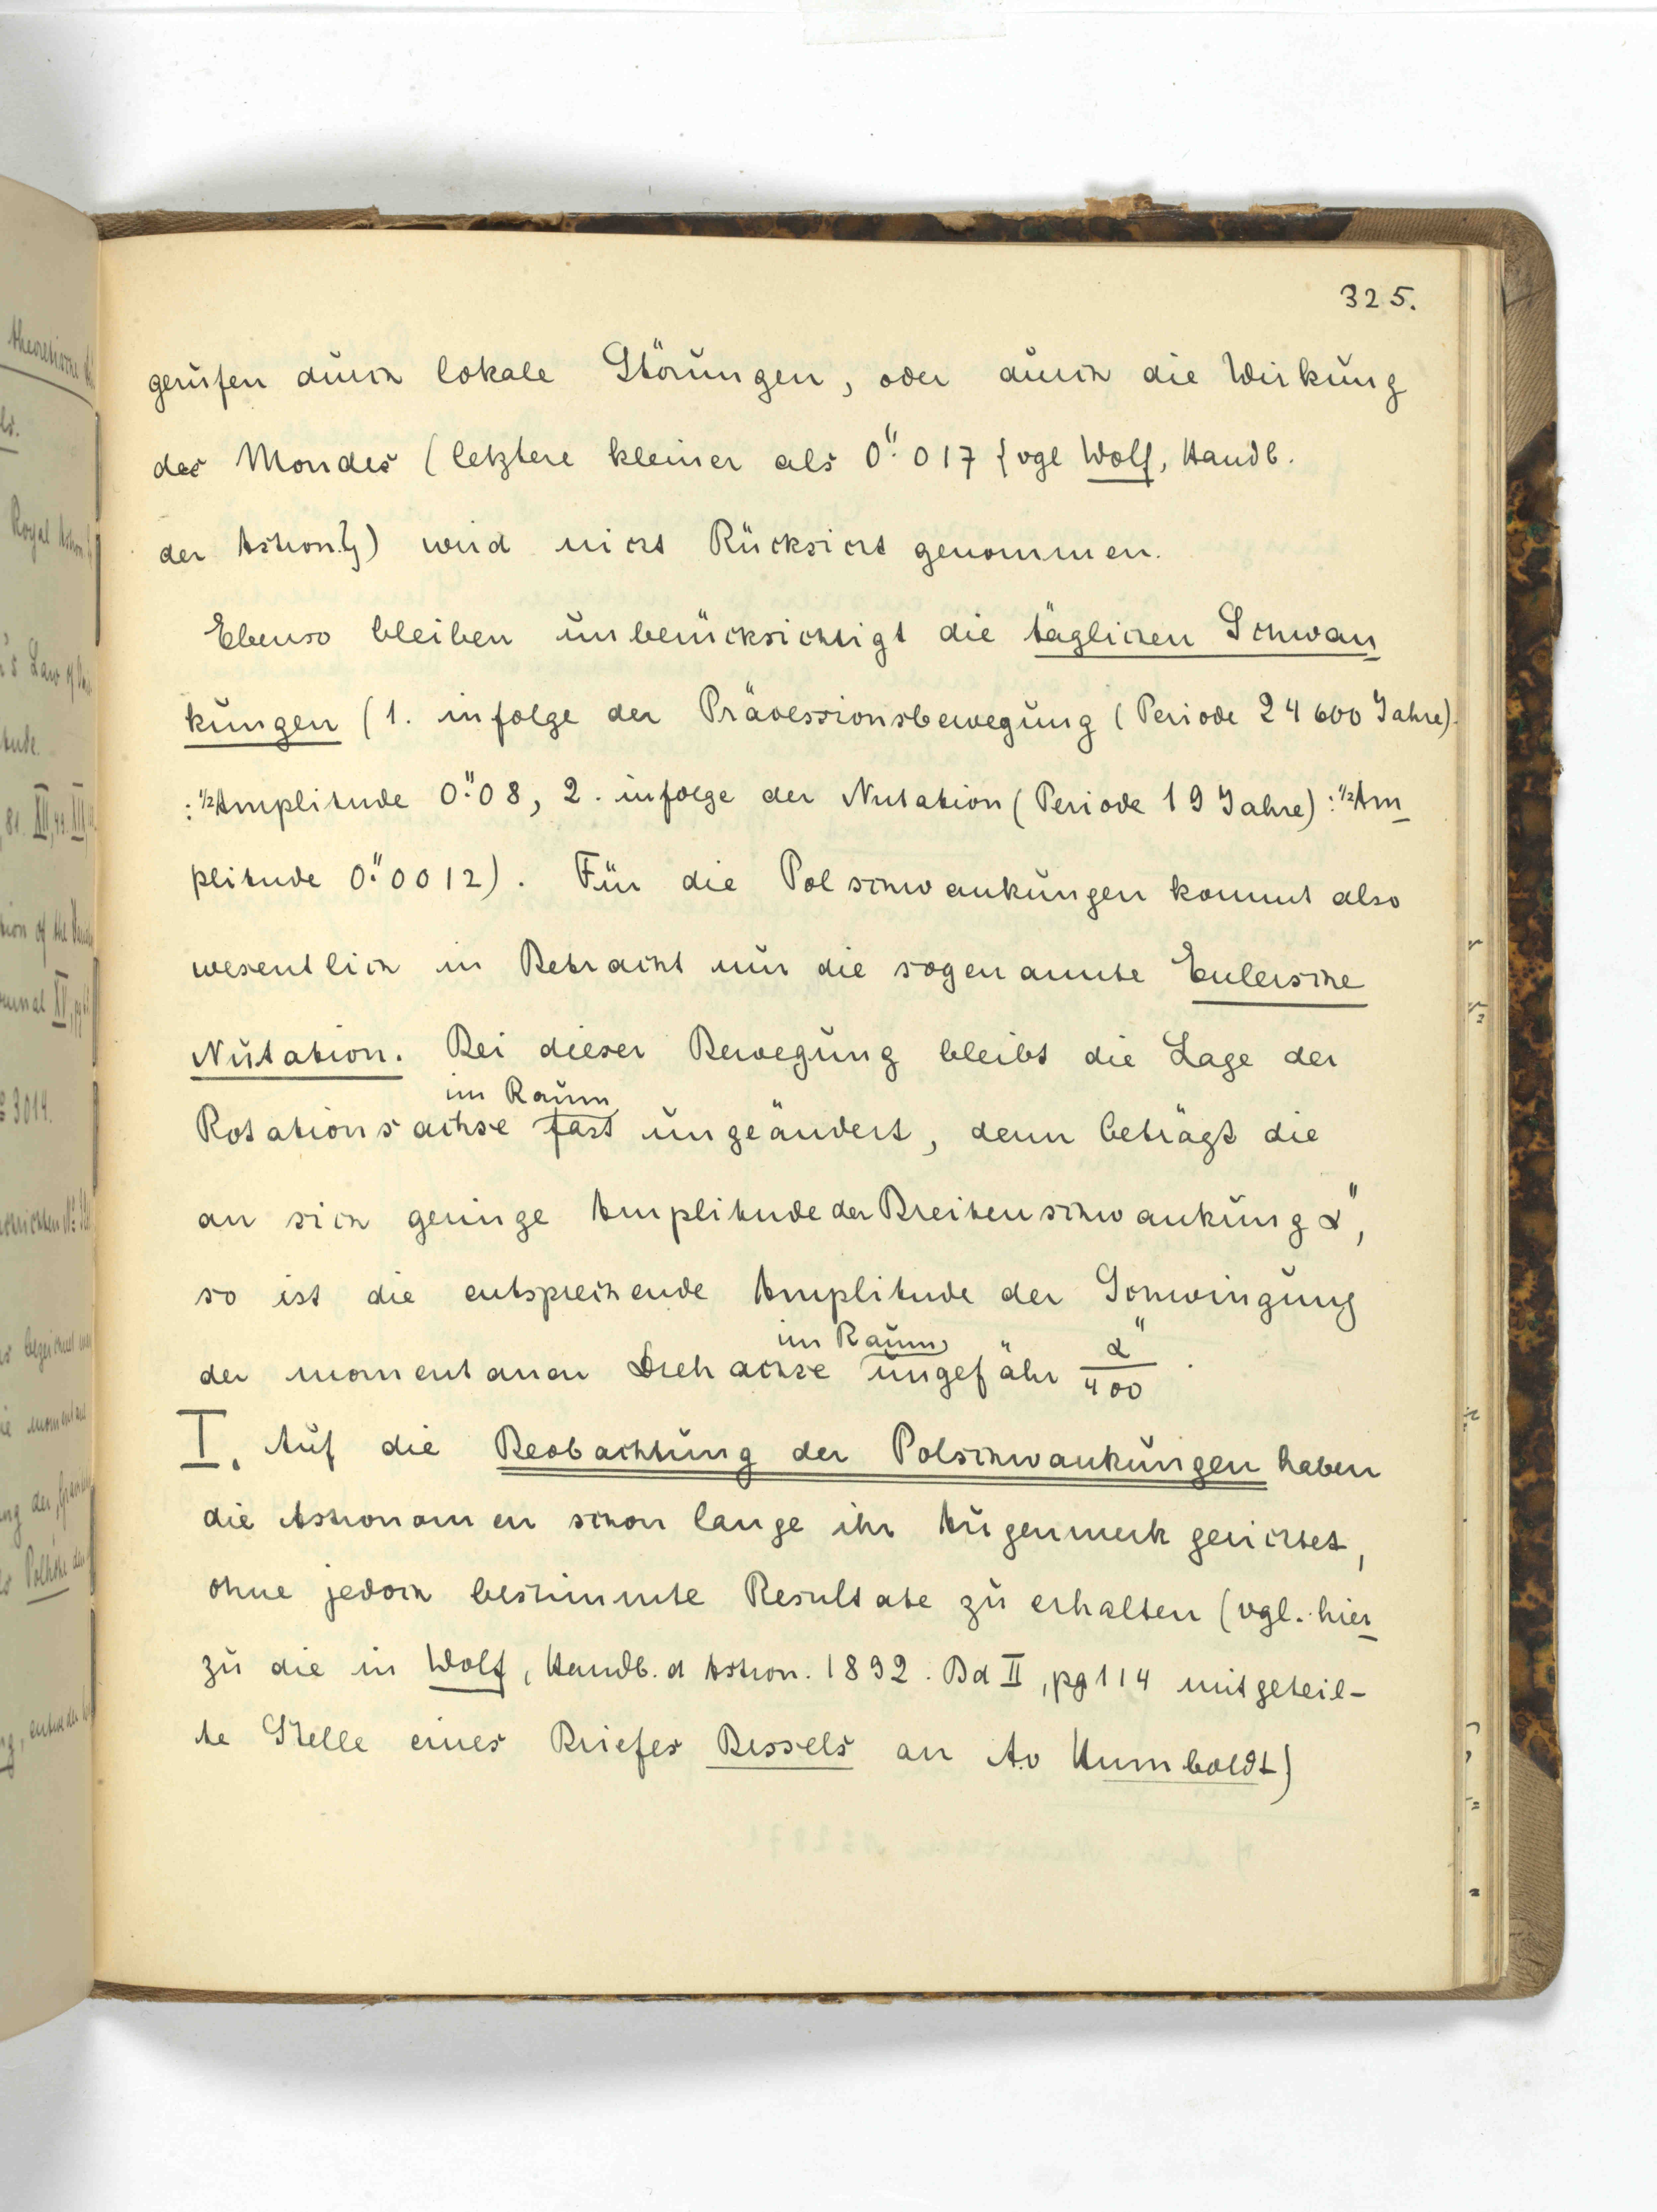 325.
gerufen durch lokale Störungen, oder durch die Wirkung
des Mondes (letztere kleiner als 0."017 {vgl Wolf, Handb.
der Astron.}) wird nicht Rücksicht genommen.
Ebenso bleiben unberücksichtigt die täglichen Schwan
kungen (1. infolge der Präcessionsbewegung (Periode 24600 Jahre).
: 1/2 Amplitude 0."08, 2. infolge der Nutation (Periode 19 Jahre) : 1/2 Am
plitude 0."0012). Für die Polschwankungen kommt also
wesentlich in Betracht nur die sogenannte Eulersche
Nutation. Bei dieser Bewegung bleibt die Lage der
im Raum
Rotationsachse fast ungeändert, denn beträgt die
an sich geringe Amplitude der Breitenschwankung α",
so ist die entsprechende Amplitude der Schwingung
im Raum
der momentanen Drehachse ungefähr α"/400.
I. Auf die Beobachtung der Polschwankungen haben
die Astronomen schon lange ihr Augenmerk gerichtet,
ohne jedoch bestimmte Resultate zu erhalten (vgl. hier
zu die in Wolf, Handb. d Astron. 1892. Bd II, pg 114 mitgeteil-
te Stelle eines Briefes Bessels an A.v Humboldt)
theoretische
Royal Astron.
's Law of
tude.
81. XII, 49. XII
tion of the
XV, pg
3014.
bezeichnet
die momentane
ung der
Polhöhe der